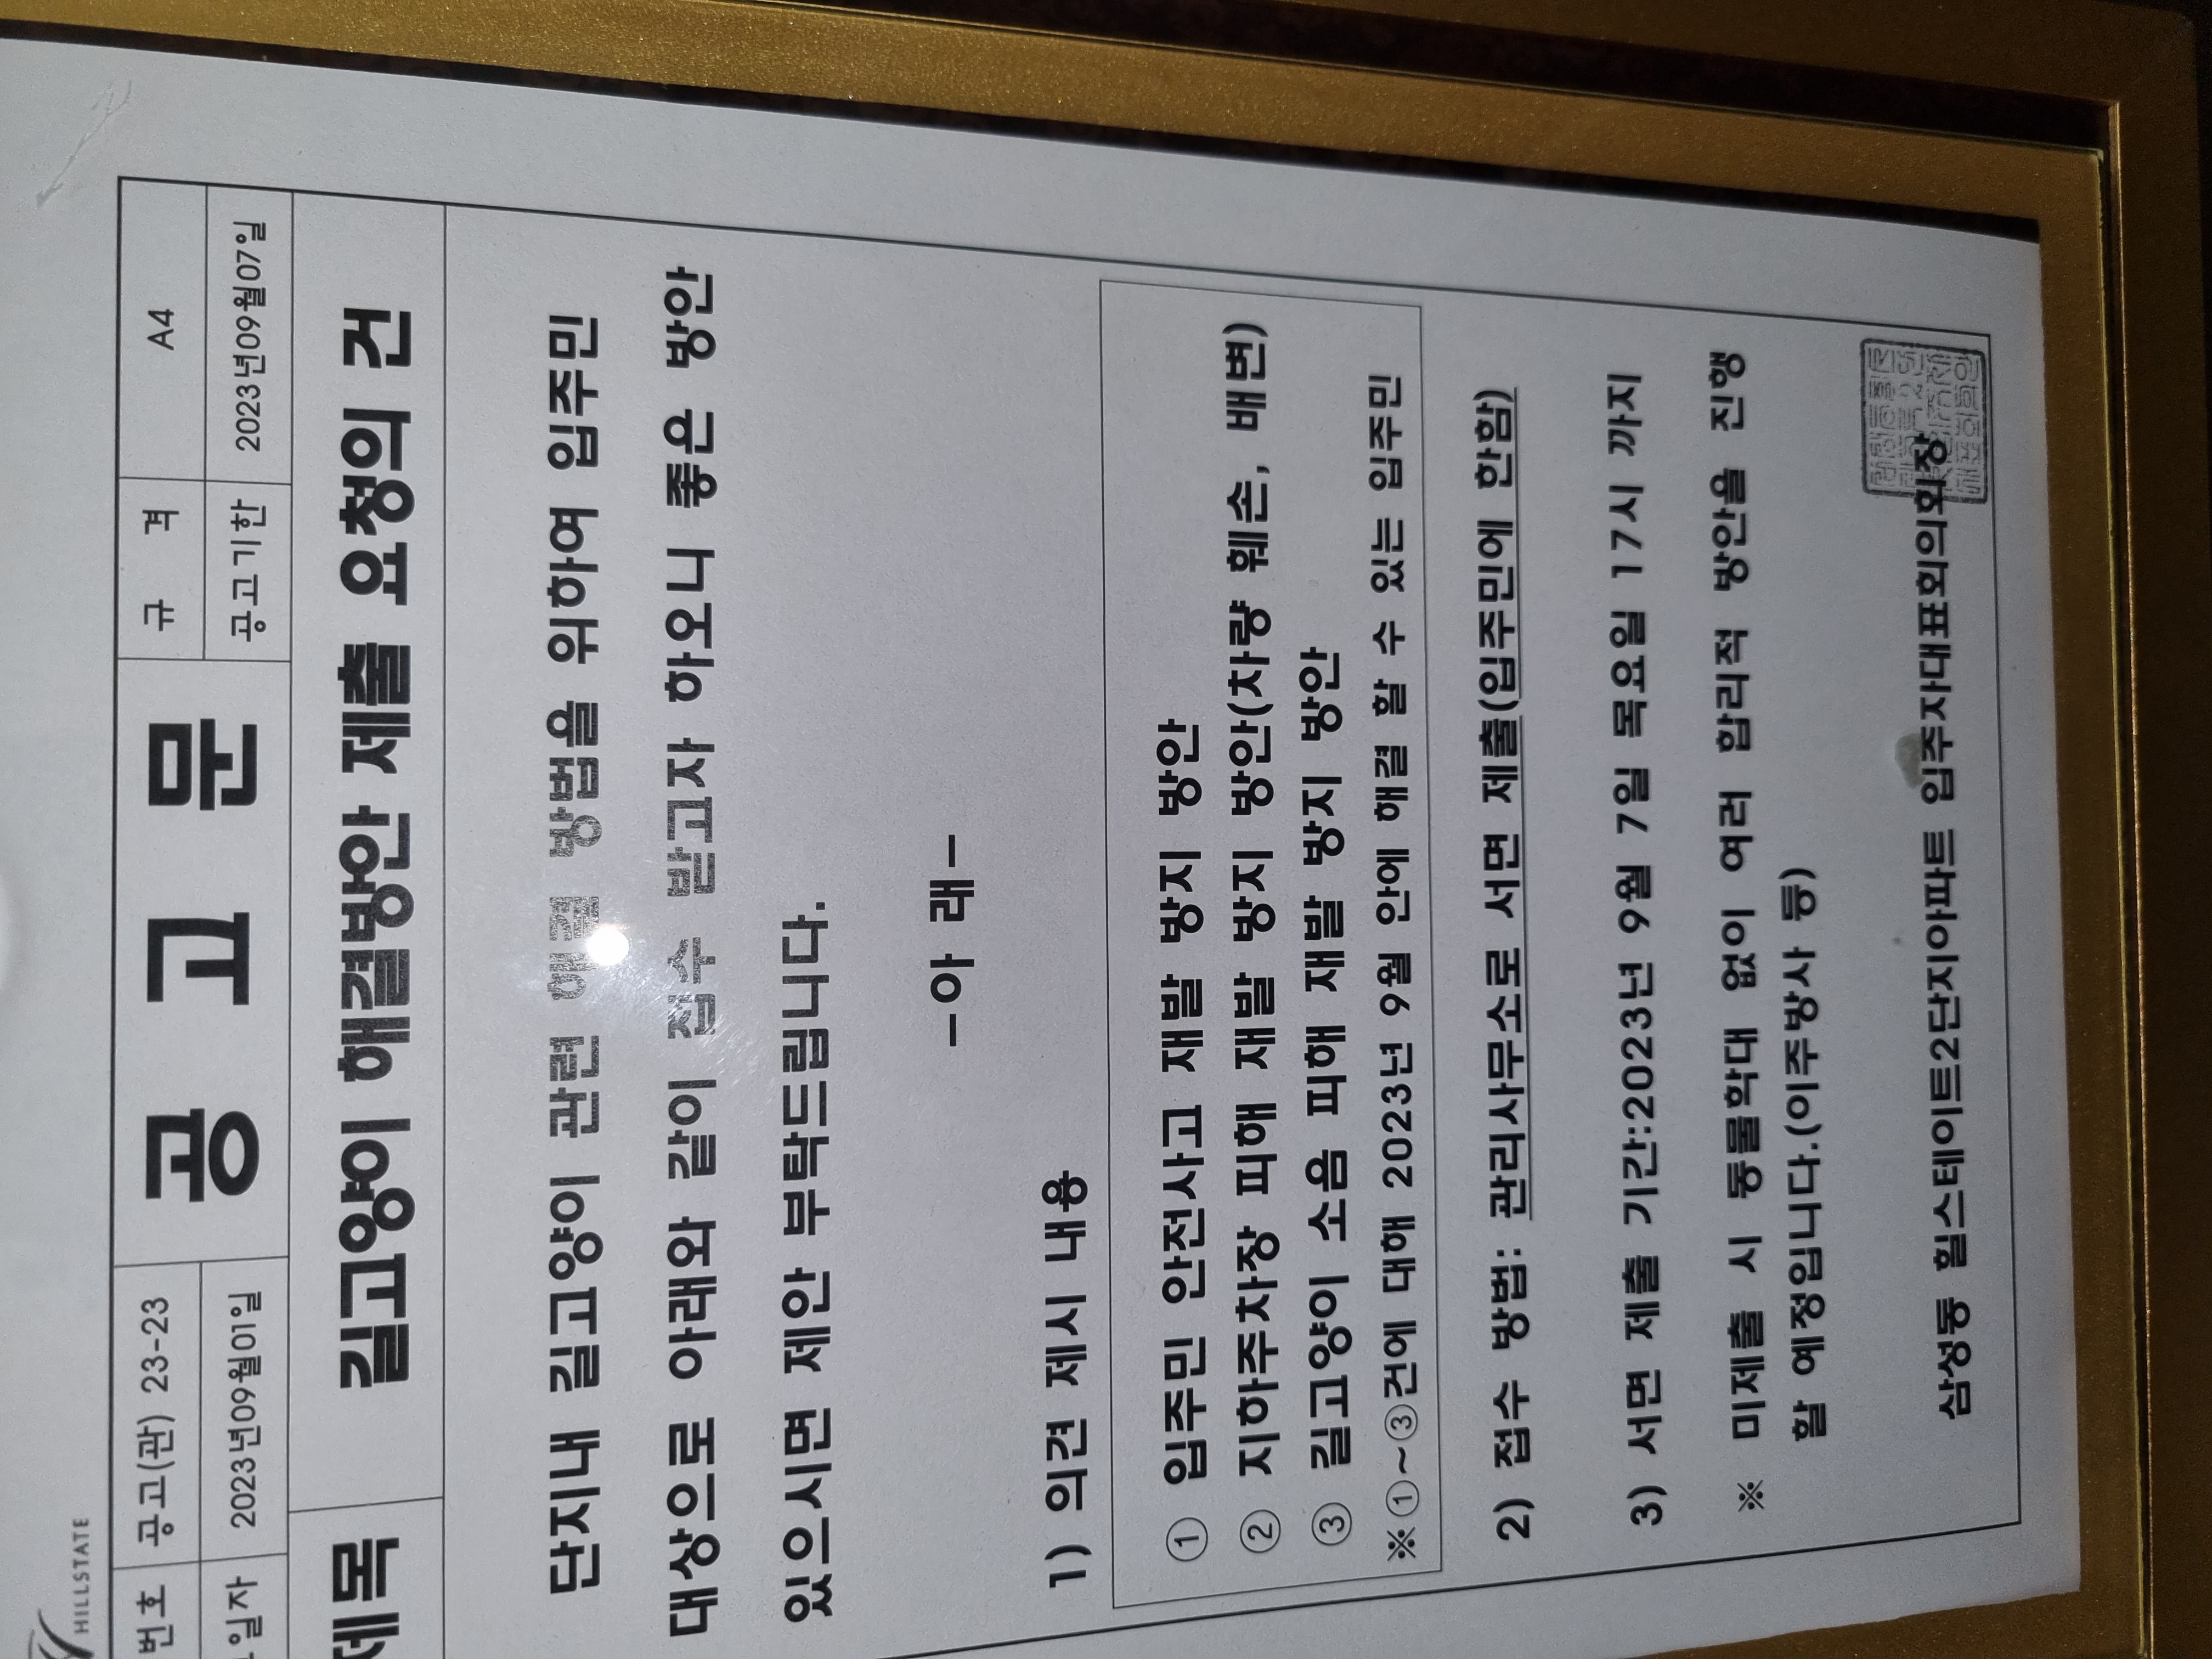 HILLSTATE
번호 공고(관) 23-23 공 고 문 규 격 A4
일자 2023년09월01일 공고기한 2023년09월07일
제목 길고양이 해결방안 제출 요청의 건
단지내 길고양이 관련 해결 방법을 위하여 입주민
대상으로 아래와 같이 접수 받고자 하오니 좋은 방안
있으시면 제안 부탁드립니다.
-아 래-
1) 의견 제시 내용
① 입주민 안전사고 재발 방지 방안
② 지하주차장 피해 재발 방지 방안(차량 훼손, 배변)
③ 길고양이 소음 피해 재발 방지 방안
※①~③건에 대해 2023년 9월 안에 해결 할 수 있는 입주민
2) 접수 방법: 관리사무소로 서면 제출(입주민에 한함)
3) 서면 제출 기간:2023년 9월 7일 목요일 17시 까지
※ 미제출 시 동물학대 없이 여러 합리적 방안을 진행
할 예정입니다.(이주방사 등)
삼성동 힐스테이트2단지아파트 입주자대표회의회장